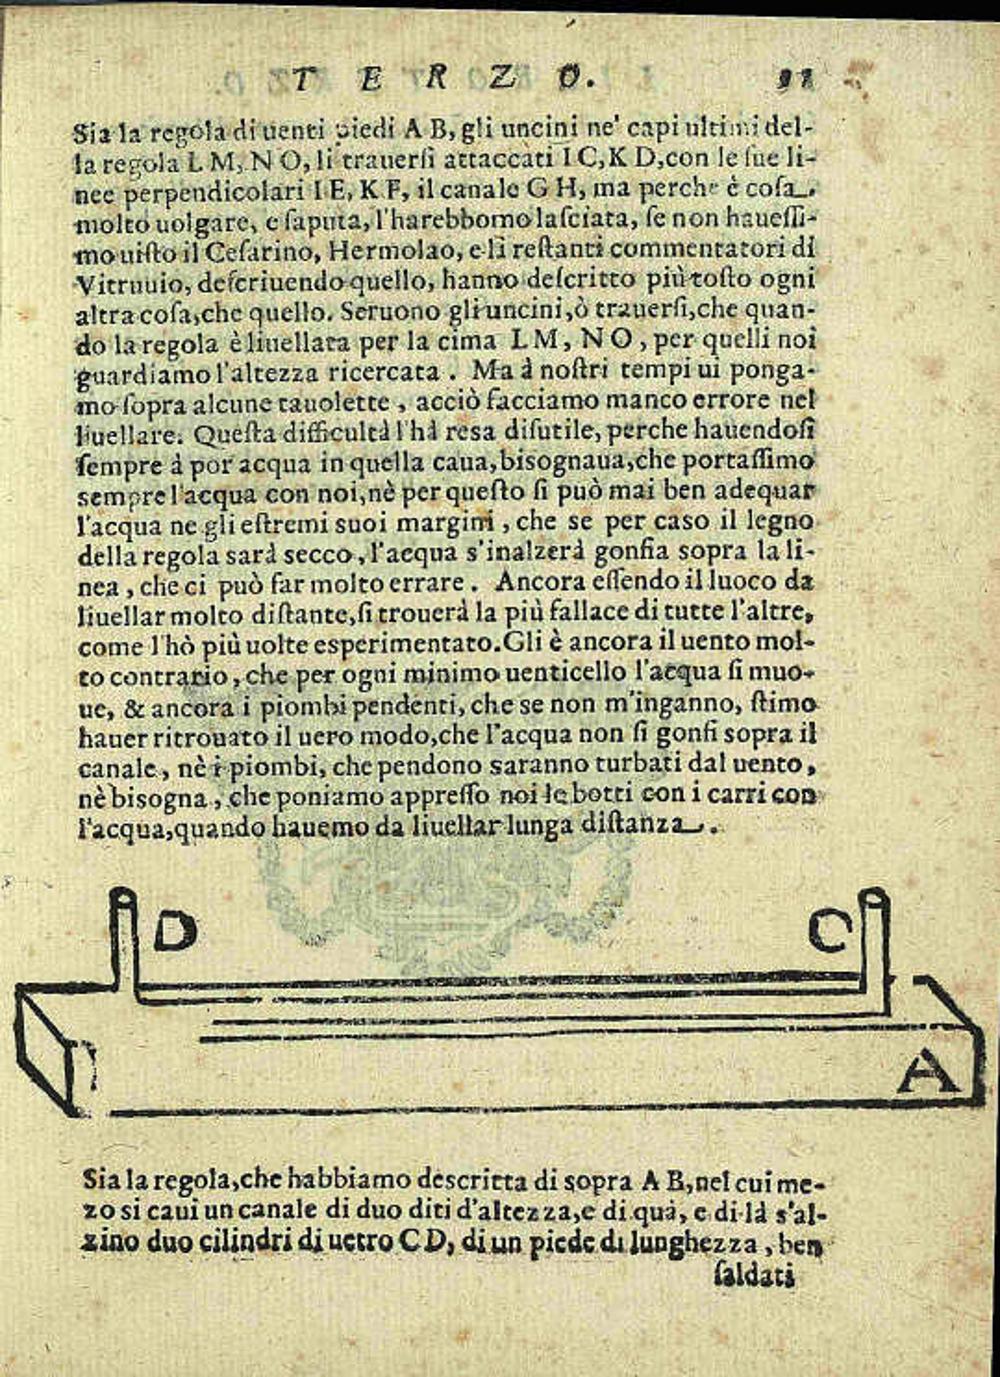 TERZO. 91
Sia la regola di uenti piedi A B, gli uncini ne' capi ultimi del-
la regola L M, N O, li trauerſi attaccati I C, K D, con le ſue li-
nee perpendicolari I E, K F, il canale G H, ma perche è coſa
molto uolgare, e ſaputa, l'harebbomo laſciata, ſe non haueſſi-
mo uiſto il Ceſarino, Hermolao, e li reſtanti commentatori di
Vitruuio, deſcriuendo quello, hanno deſcritto più toſto ogni
altra coſa, che quello. Seruono gli uncini, ò trauerſi, che quan-
do la regola è liuellata per la cima L M, N O, per quelli noi
guardiamo l'altezza ricercata. Ma à noſtri tempi ui ponga-
mo ſopra alcune tauolette, acciò facciamo manco errore nel
liuellare. Queſta difficultà l'hà reſa diſutile, perche hauendoſi
ſempre à por acqua in quella caua, biſognaua, che portaſſimo
sempre l'acqua con noi, nè per queſto ſi può mai ben adequar
l'acqua ne gli eſtremi suoi margini, che se per caso il legno
della regola sarà secco, l'acqua s'inalzerà gonfia sopra la li-
nea, che ci può far molto errare. Ancora eſſendo il luoco da
liuellar molto diſtante, ſi trouerà la più fallace di tutte l'altre,
come l'hò più uolte esperimentato. Gli è ancora il uento mol-
to contrario, che per ogni minimo uenticello l'acqua ſi muo-
ue, & ancora i piombi pendenti, che se non m'inganno, ſtimo
hauer ritrouato il uero modo, che l'acqua non ſi gonfi sopra il
canale, nè i piombi, che pendono saranno turbati dal uento,
nè bisogna, che poniamo appreſſo noi le botti con i carri con
l'acqua, quando hauemo da liuellar lunga diſtanza.
D C
A
Sia la regola, che habbiamo descritta di sopra A B, nel cui me-
zo si caui un canale di duo diti d'altezza, e di quà, e di là s'al-
zino duo cilindri di uetro C D, di un piede di lunghezza, ben
ſaldati